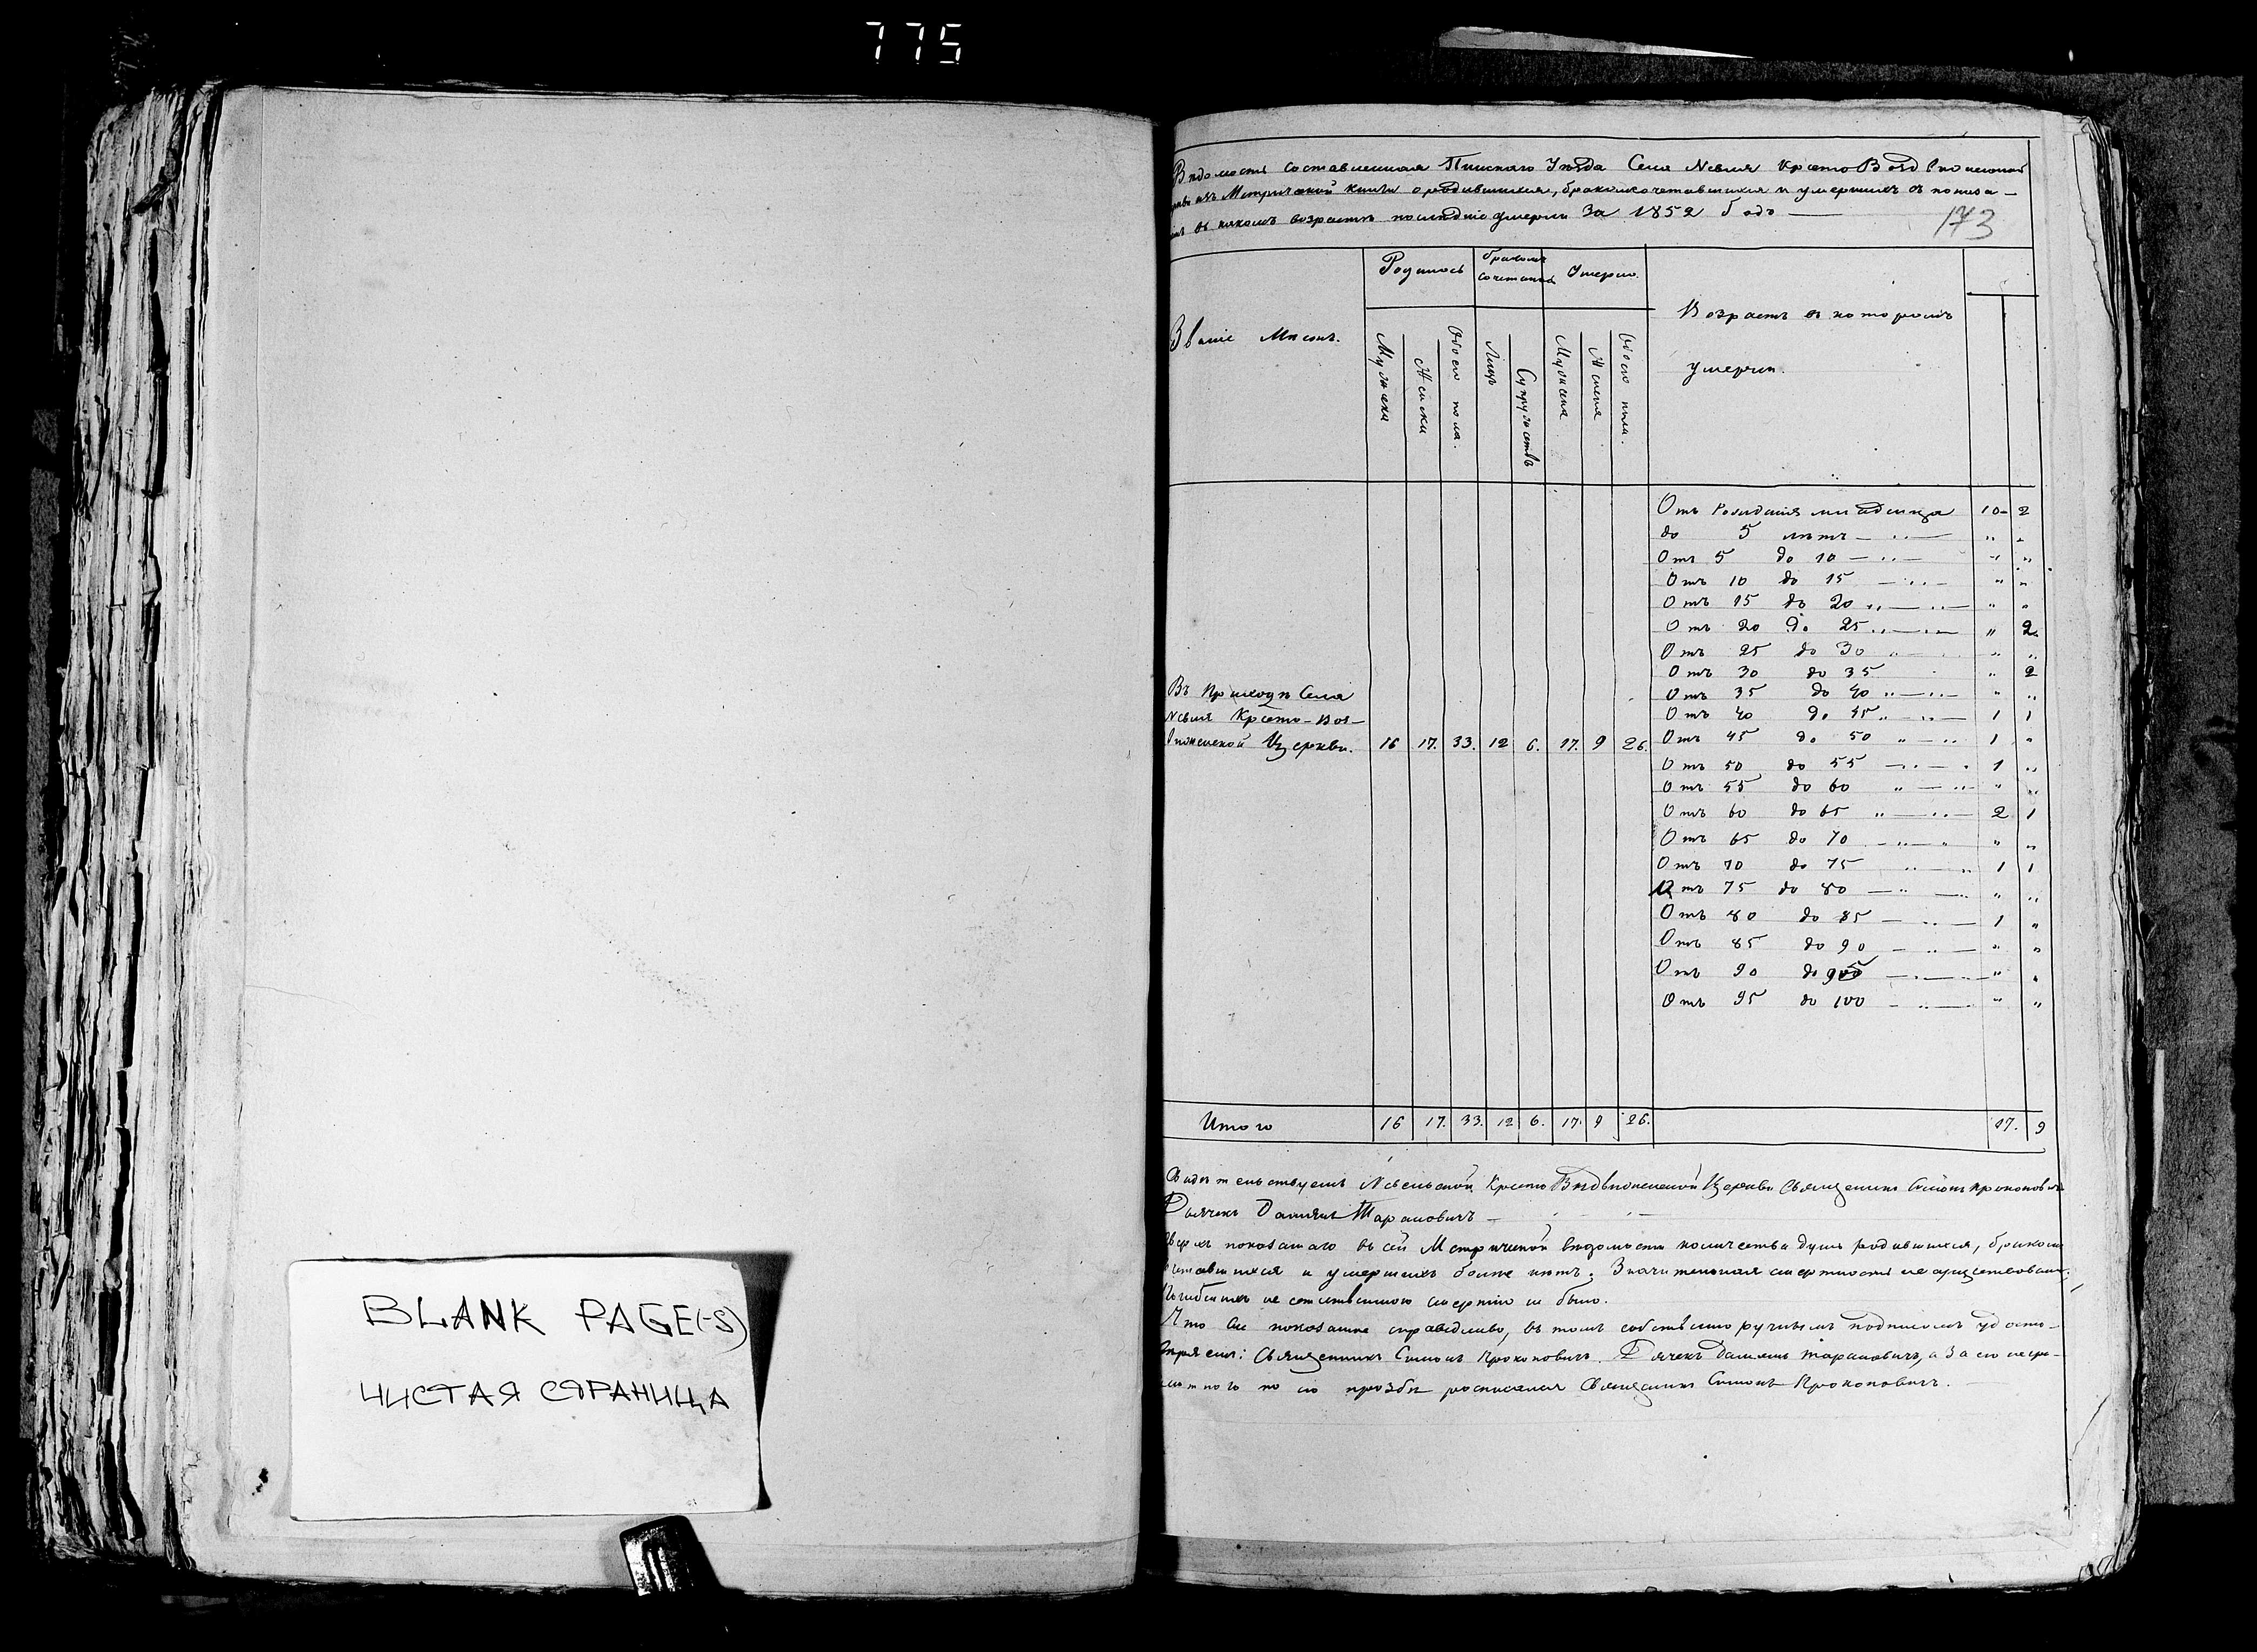 775
Вѣдомость составленная Пинскаго Уѣзда Села Невля Кресто Воздвиженской
изъ Метрической книги о родившихся, бракомсочетавшихся и умершихъ съ показа-
въ какомъ возрастѣ последніе умерли За 1852 Годъ —
173
Званіе Мѣстъ.
Родилось
Бракомъ
Сочетаніе
Умерло.
Возрастъ въ которомъ
умерли.
Мужска
Женски
Обоего пола.
Лицъ
Супружествъ
Мужска
Женска
Обоего пола.
Отъ Рожденія младенца 10 - 2
до 5 лѣтъ — „ — „ „
Отъ 5 до 10 — „ — „ „
Отъ 10 до 15 — „ — „ „
Отъ 15 до 20 „ — „ — „ „
Отъ 20 до 25 „ — „ — „ 2.
Отъ 25 до 30 „ — „ „
Отъ 30 до 35 „ 2
Отъ 35 до 40 „ — „ — „ „
Отъ 40 до 45 „ — „ — 1 1
Отъ 45 до 50 „ — „ 1 „
Отъ 50 до 55 — „ — 1 „
Отъ 55 до 60 „ — „ „ „
Отъ 60 до 65 „ — „ — 2 1
Отъ 65 до 70 — „ — „ „ „
Отъ 70 до 75 „ — „ 1 1
Отъ 75 до 80 — „ — „ „
Отъ 80 до 85 — „ — 1 „
Отъ 85 до 90 — „ — „ „
Отъ 90 до 95 — „ — „ „
Отъ 95 до 100 — „ — „ „
Въ Приходѣ Села
Невля Кресто-Воз-
движенской Церкви. 16 17. 33. 12 6. 17. 9 26.
Итого 16 17. 33. 12 6. 17. 9 26. 17. 9
Свидѣтельствуемъ Невельской Кресто Воздвиженской Церкви Священникъ Симонъ Прокоповичъ
Дьячекъ Даміянъ Тарановичъ —
показанаго въ сей Метрической вѣдомости количества душъ родившихся, бракомъ
и умершихъ болѣе нѣтъ; Значительная смертность не существовала;
Погибшихъ не естественною смертію не было.
Что сіе показаніе справедливо, въ томъ собственно ручнымъ подписомъ удосто-
Священникъ Симонъ Прокоповичъ. Дячекъ Даміянъ Тарановичъ, а за его негра-
по его прозбѣ росписался Священникъ Симонъ Прокоповичъ.
BLANK PAGE(-S)
ЧИСТАЯ СТРАНИЦА